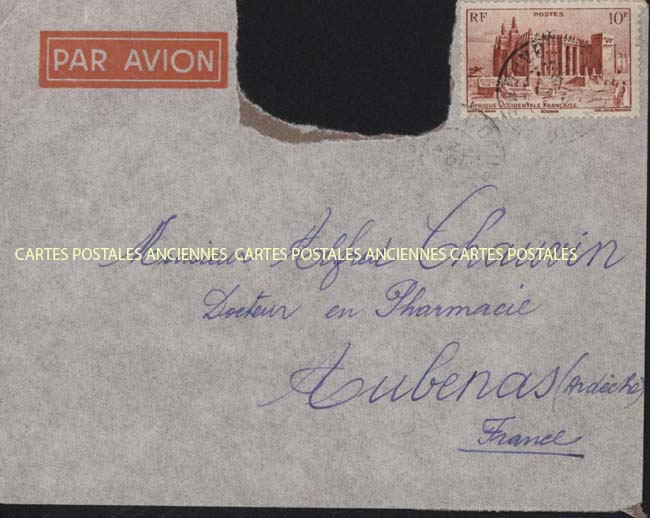 PAR AVION
RF POSTES 10F
AFRIQUE OCCIDENTALE FRANÇAISE
SOUDAN
CARTES POSTALES ANCIENNES CARTES POSTALES ANCIENNES CARTES POSTALES
Monsieur Alfred Chauvin
Docteur en Pharmacie
Aubenas (Ardèche)
France